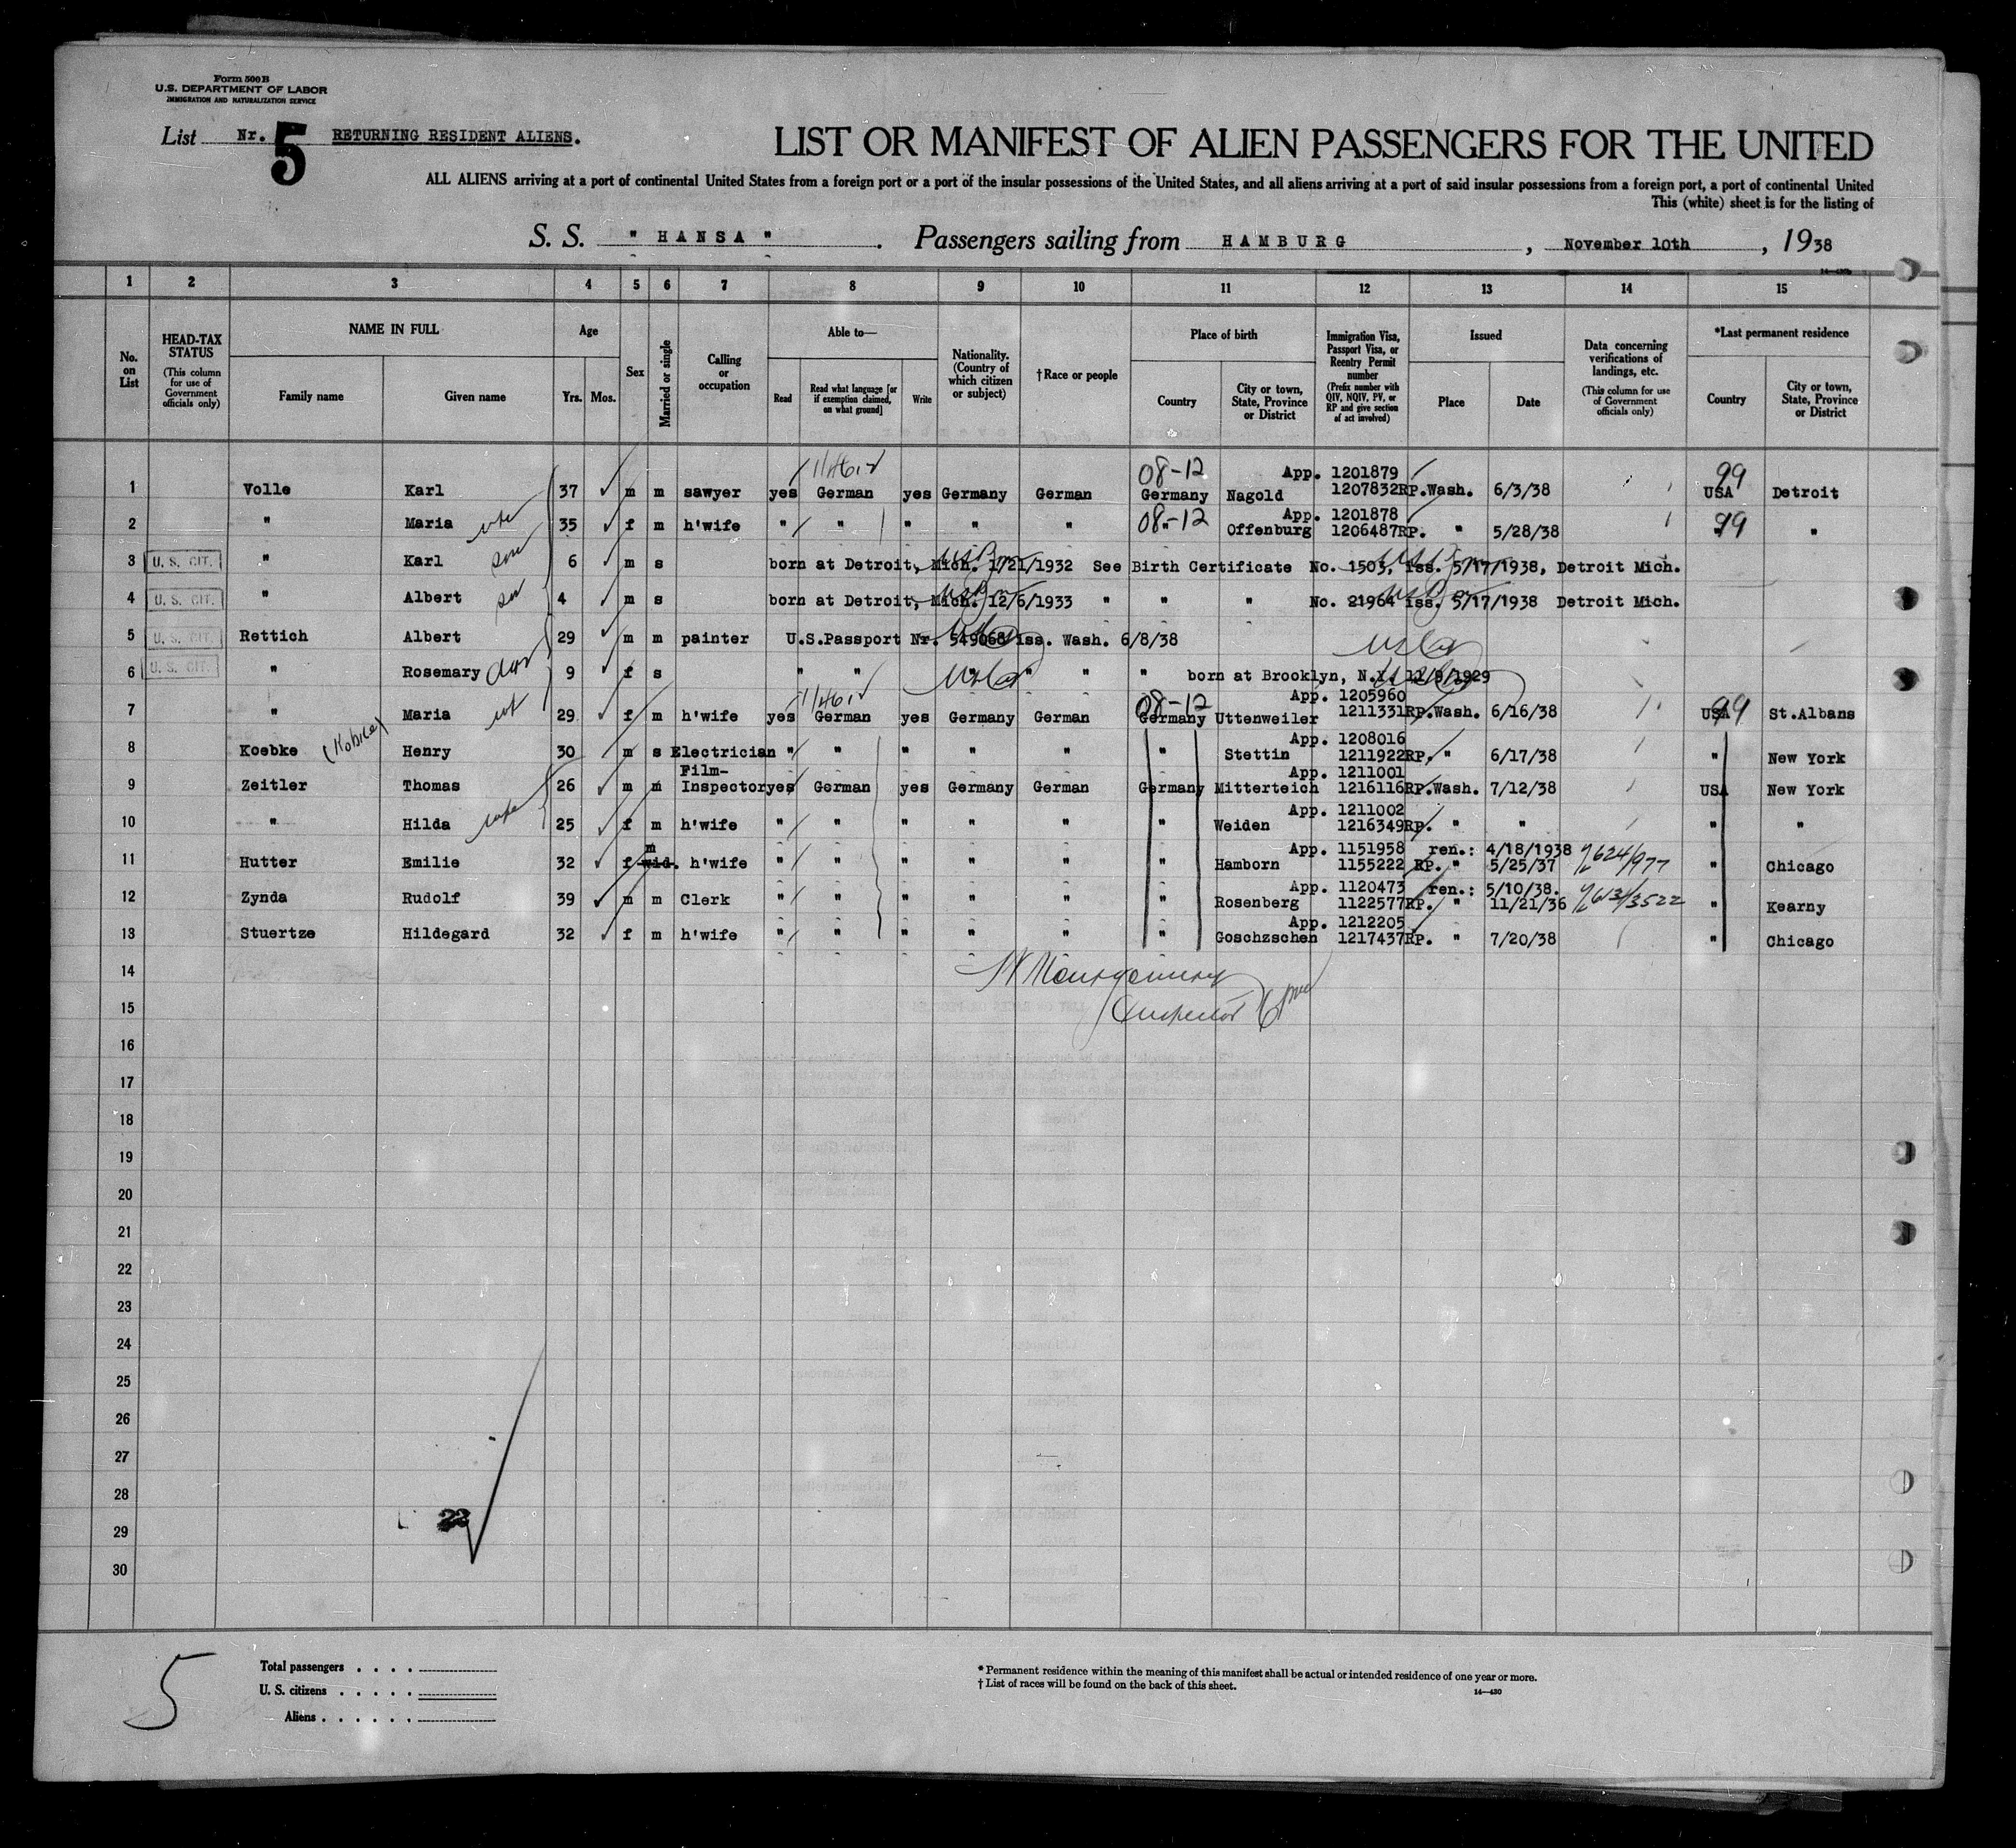 Form 500 B
U.S. DEPARTMENT OF LABOR
IMMIGRATION AND NATURALIZATION SERVICE
List Nr. 5 RETURNING RESIDENT ALIENS.
LIST OR MANIFEST OF ALIEN PASSENGERS FOR THE UNITED
ALL ALIENS arriving at a port of continental United States from a foreign port or a port of the insular possessions of the United States, and all aliens arriving at a port of said insular possessions from a foreign port, a port of continental United
This (white) sheet is for the listing of
S. S. " HANSA " . Passengers sailing from HAMBURG , November 10th , 1938
1 2 3 4 5 6 7 8 9 10 11 12 13 14 15
No. on List
HEAD-TAX STATUS (This column for use of Government officials only)
NAME IN FULL Family name Given name
Age Yrs. Mos.
Sex
Married or single
Calling or occupation
Able to— Read Read what language [or if exemption claimed, on what ground] Write
Nationality. (Country of which citizen or subject)
†Race or people
Place of birth Country City or town, State, Province or District
Immigration Visa, Passport Visa, or Reentry Permit number (Prefix number with QIV, NQIV, PV, or RP and give section of act involved)
Issued Place Date
Data concerning verifications of landings, etc. (This column for use of Government officials only)
*Last permanent residence Country City or town, State, Province or District
08-12 App. 1201879 99
1 Volle Karl 37 m m sawyer yes German yes Germany German Germany Nagold 1207832RP. Wash. 6/3/38 USA Detroit
08-12 App. 1201878 99
2 " Maria 35 f m h'wife " " " " " " Offenburg 1206487RP. " 5/28/38 "
3 U. S. CIT. " Karl son 6 m s born at Detroit, Mich. 1/21/1932 See Birth Certificate No. 1503, iss. 5/17/1938, Detroit Mich.
4 U. S. CIT. " Albert 4 m s born at Detroit, Mich. 12/6/1933 " " " No. 21964 iss. 5/17/1938 Detroit Mich.
5 U. S. CIT. Rettich Albert 29 m m painter U.S.Passport Nr. 549068 iss. Wash. 6/8/38
6 U. S. CIT. " Rosemary 9 f s " " " " " born at Brooklyn, N.Y.
08-12 App. 1205960 99
7 " Maria 29 f m h'wife yes German yes Germany German Germany Uttenweiler 1211331RP. Wash. 6/16/38 USA St.Albans
App. 1208016
8 Koebke Henry 30 m s Electrician " " " " " " Stettin 1211922RP. " 6/17/38 " New York
Film- App. 1211001
9 Zeitler Thomas 26 m m Inspector yes German yes Germany German Germany Mitterteich 1216116RP. Wash. 7/12/38 USA New York
App. 1211002
10 " Hilda wife 25 f m h'wife " " " " " " Weiden 1216349RP. " " " "
m App. 1151958 ren.: 4/18/1938
11 Hutter Emilie 32 f wid. h'wife " " " " " " Hamborn 1155222 RP. " 5/25/37 624/977 " Chicago
App. 1120473 ren.: 5/10/38.
12 Zynda Rudolf 39 m m Clerk " " " " " " Rosenberg 1122577RP. " 11/21/36 " Kearny
App. 1212205
13 Stuertze Hildegard 32 f m h'wife " " " " " " Goschzschen 1217437RP. " 7/20/38 " Chicago
14
Montgomery
15
Inspector
16
17
18
19
20
21
22
23
24
25
26
27
28
29
30
5
Total passengers . . . .
U. S. citizens . . . . .
Aliens . . . . . .
* Permanent residence within the meaning of this manifest shall be actual or intended residence of one year or more.
† List of races will be found on the back of this sheet.
14—430